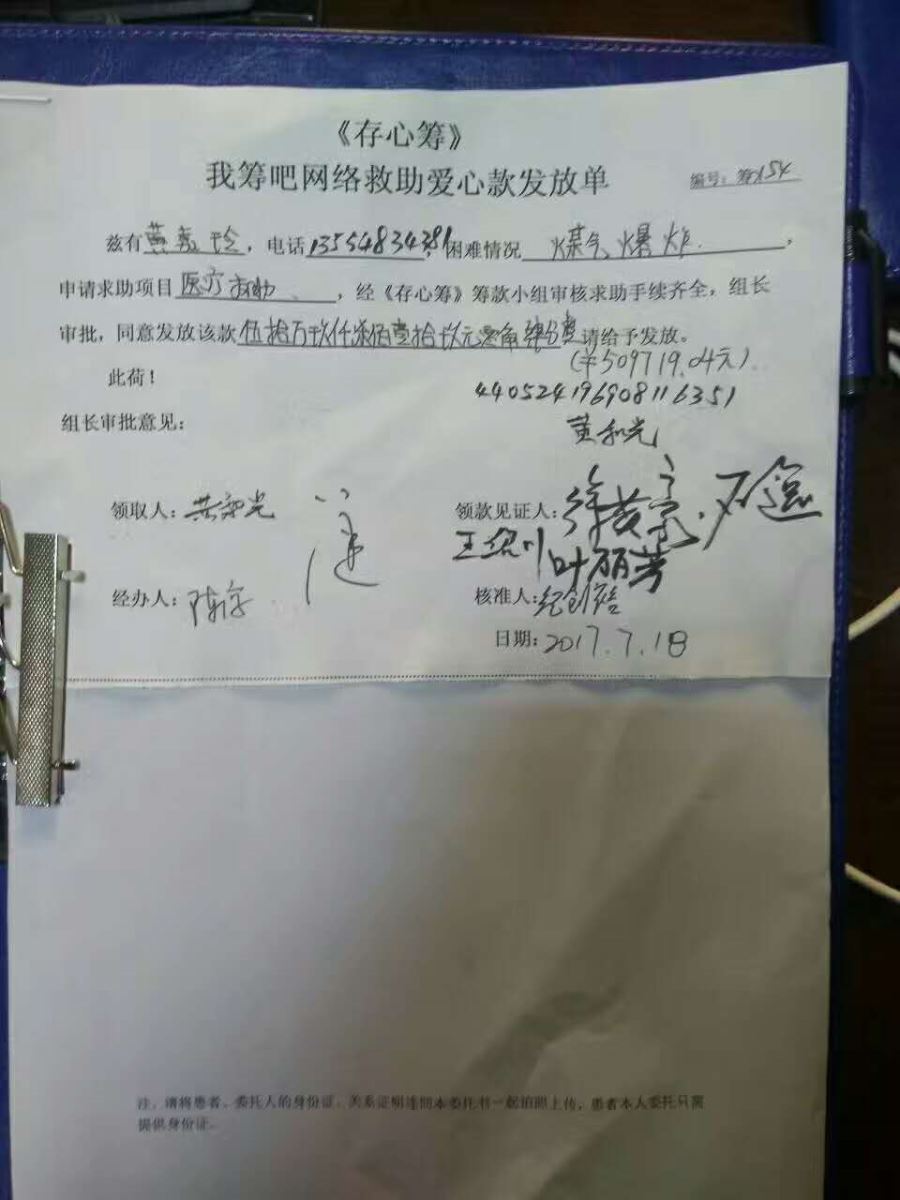 《存心筹》
我筹吧网络救助爱心款发放单
编号：筹154
兹有黄秀玲，电话13554834381，困难情况 煤气爆炸，
申请求助项目 医疗救助，经《存心筹》筹款小组审核求助手续齐全，组长
审批，同意发放该款 伍拾万玖仟柒佰壹拾玖元零角肆分 请给予发放。
(¥509719.04元)
此荷！
440524196908116351
组长审批意见：
黄和光
领取人：黄和光
领款见证人：
叶丽芳
经办人：陈
核准人：纪创
日期：2017.7.18
注，请将患者、委托人的身份证、关系证明连同本委托书一起拍照上传，患者本人委托只需
提供身份证。